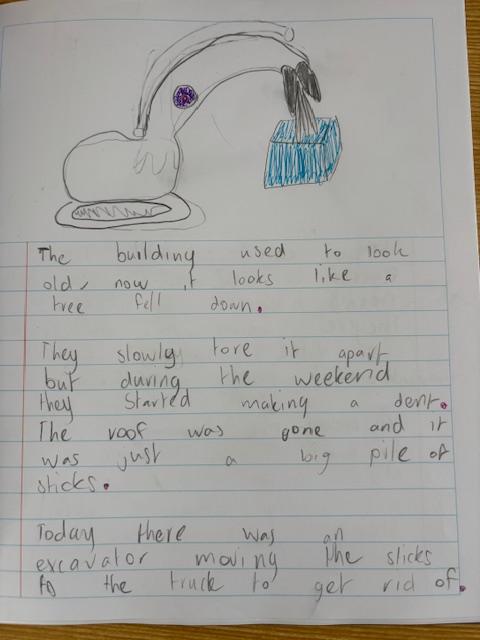 The building used to look
old, now it looks like a
tree fell down.
They slowly tore it apart
but during the weekend
they started making a dent.
The roof was gone and it
was just a big pile of
sticks.
Today there was an
excavator moving the sticks
to the truck to get rid of.